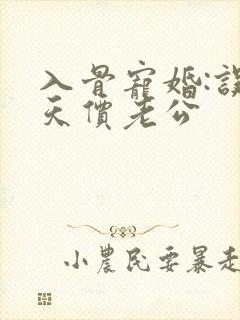 入骨寵婚:誤
天價老公
小農民要暴走